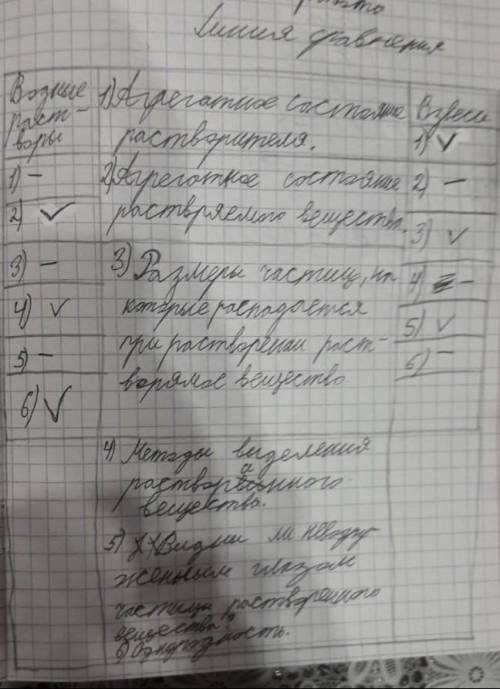 Линия сравнения
Водные
раст-
воры
1) –
2) ✓
3) –
4) ✓
5) –
6) ✓
1) Агрегатное состояние
растворителя.
2) Агрегатное состояние
растворяемого вещества.
3) Размеры частиц, на
которые распадается
при растворении раст-
ворямое вещество
4) Методы выделения
растворённого
вещества.
5) Видны ли невоору
женным глазом
частицы растворенного
вещества?
6) Однородность.
Взвеси
1) ✓
2) –
3) ✓
4) –
5) ✓
6) –